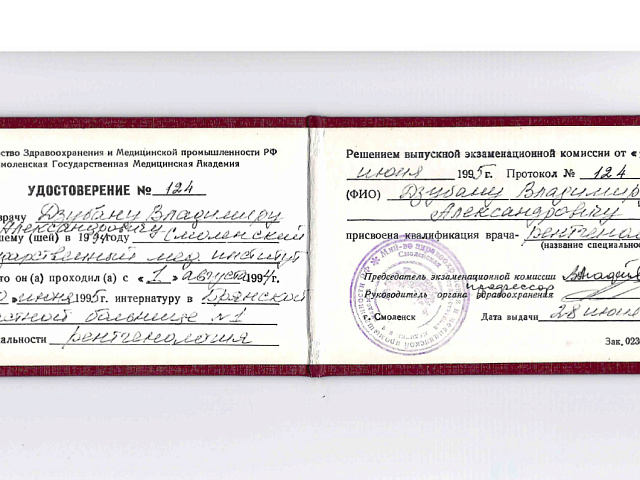 ство Здравоохранения и Медицинской промышленности РФ
моленская Государственная Медицинская Академия
УДОСТОВЕРЕНИЕ № 124
врачу Дзубану Владимиру
Александровичу
шему (шей) в 1994 году Смоленский
дарственный мед. институт
что он (а) проходил (а) с «1» августа 1994 г.
июня 1995 г. интернатуру в Брянской
астной больнице №1
альности рентгенология
Решением выпускной экзаменационной комиссии от «
июня 1995 г. Протокол № 124
(ФИО) Дзубану Владимир
Александровичу
присвоена квалификация врача- рентгенол
(название специально
Председатель экзаменационной комиссии
профессор
Руководитель органа здравоохранения
г. Смоленск Дата выдачи 28 июня
Зак. 023